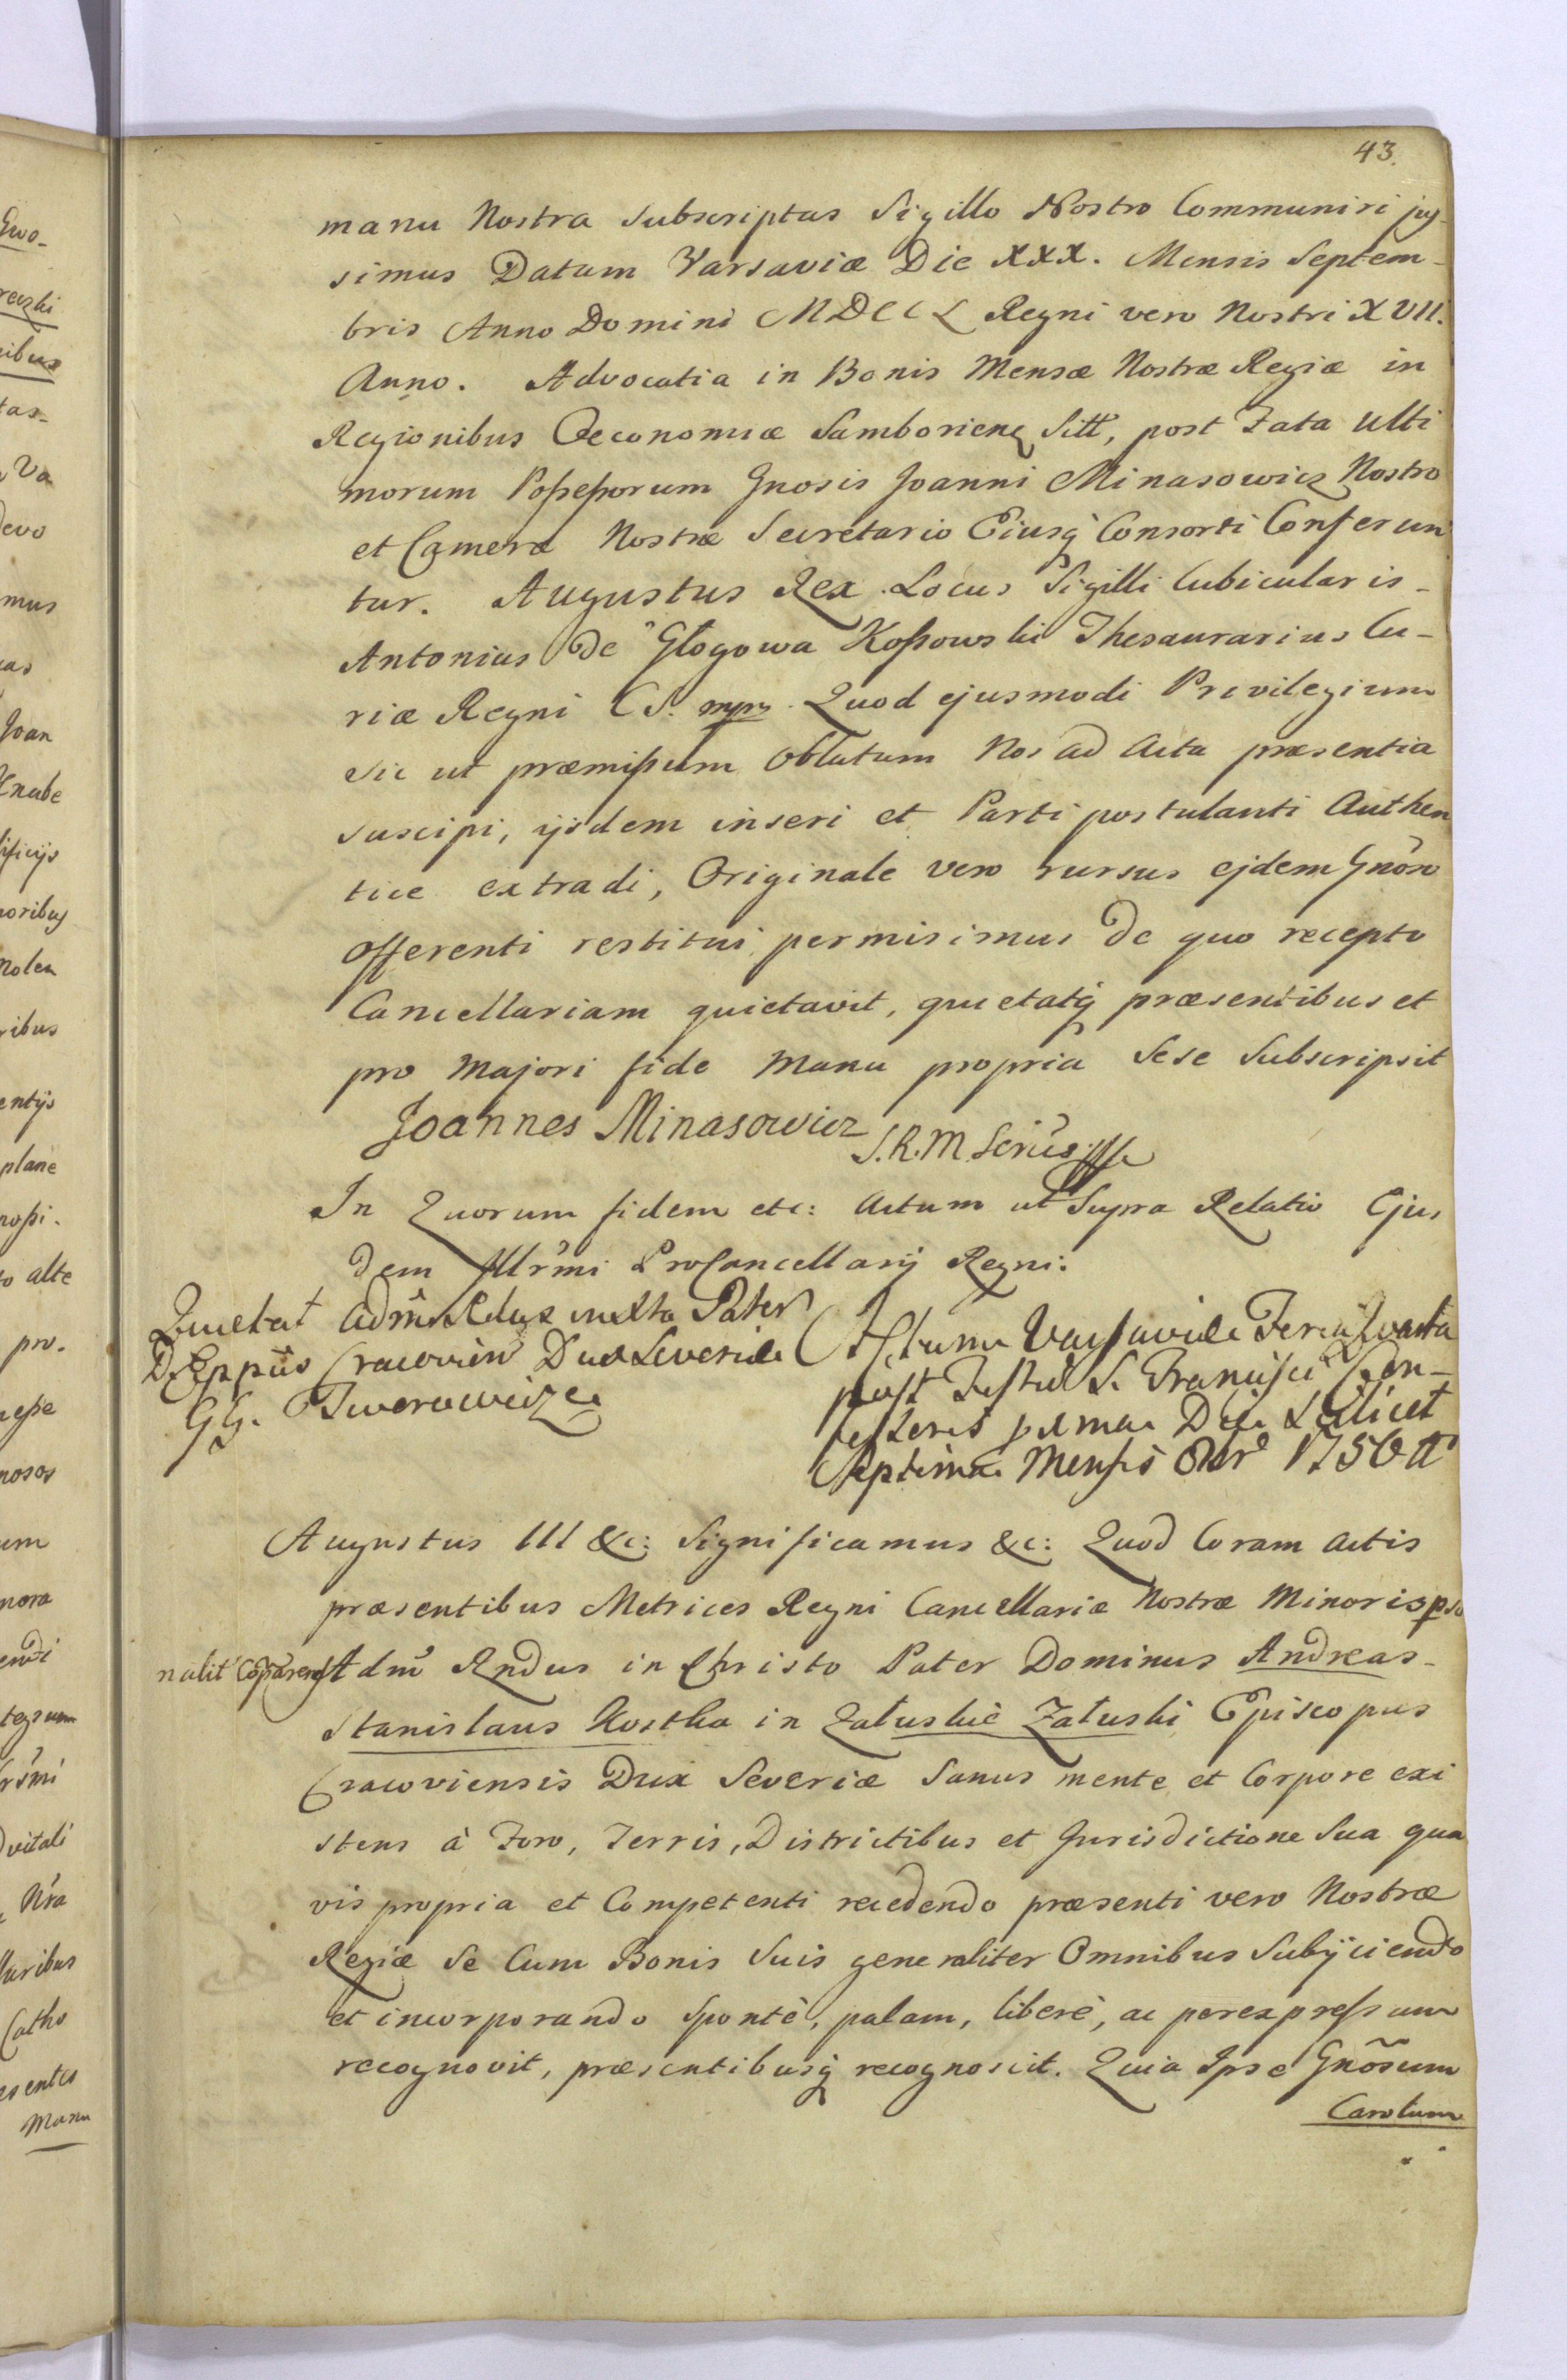 43.
manu Nostra Subscriptas Sigillo Nostro Communiri jus-
simus Datum Varsaviæ Die XXX. Mensis Septem-
bris Anno Domini MDCCL Regni vero Nostri XVII.
Anno. Advocatia in Bonis Mensæ Nostræ Regiæ in
Regionibus Oeconomiæ Samborienq Sitt, post Fata Ulti
morum Possessorum Gnosis Joanni Minasowicz Nostro
et Cameræ Nostræ Secretario Eiusq Consorti Conferun
tur. Augustus Rex. Locus Sigilli Cubicularis -
Antonius De Głogowa Kossowski Thesaurarius Cu-
riæ Regni CS. mpp. Quod ejusmodi Privilegium
Sic ut præmissum Oblatum Nos ad Acta præsentia
suscipi, ijsdem inseri et Parti postulanti Authen
tice extradi, Originale vero rursus ejdem Gnõso
Offerenti restitui permisimus De quo recepto
Cancellariam quietavit, quietatq præsentibus et
pro Majori fide Manu propria Sese Subscripsit
Joannes Minasowicz S.R.M. Scrius
In Quorum fidem etc: Actum ut Supra Relatio Ejus
dem Illr̃mi ProCancellarij Regni.
Quietat Adm̃ Rdus in Xto Pater
D. Eppus Cracovien Dux Severiæ
GG. Tworowicze
Actum Varsaviæ Feria Quarta
post Festum S. Francisci Con-
fessoris prma Die Scilicet
Septima Mensis Obr 1750 A
Augustus III &c: Significamus &c: Quod Coram Actis
præsentibus Metrices Regni Cancellariæ Nostræ Minoris pso
nalit Comparens Adm̃ Rndus in Christo Pater Dominus Andreas-
Stanislaus Kostka in Załuskie Załuski Episcopus
Cracoviensis Dux Severiæ Sanus mente et Corpore exi
stens à Foro, Terris, Districtibus et Jurisdictione Sua qua
vis propria et Competenti recedendo præsenti vero Nostræ
Regiæ Se Cum Bonis Suis generaliter Omnibus Subijciendo
et incorporando Spontè, palam, liberè, ac per expressum
recognovit, præsentibusq recognoscit. Quia Ipse Gnõsum
Carolum